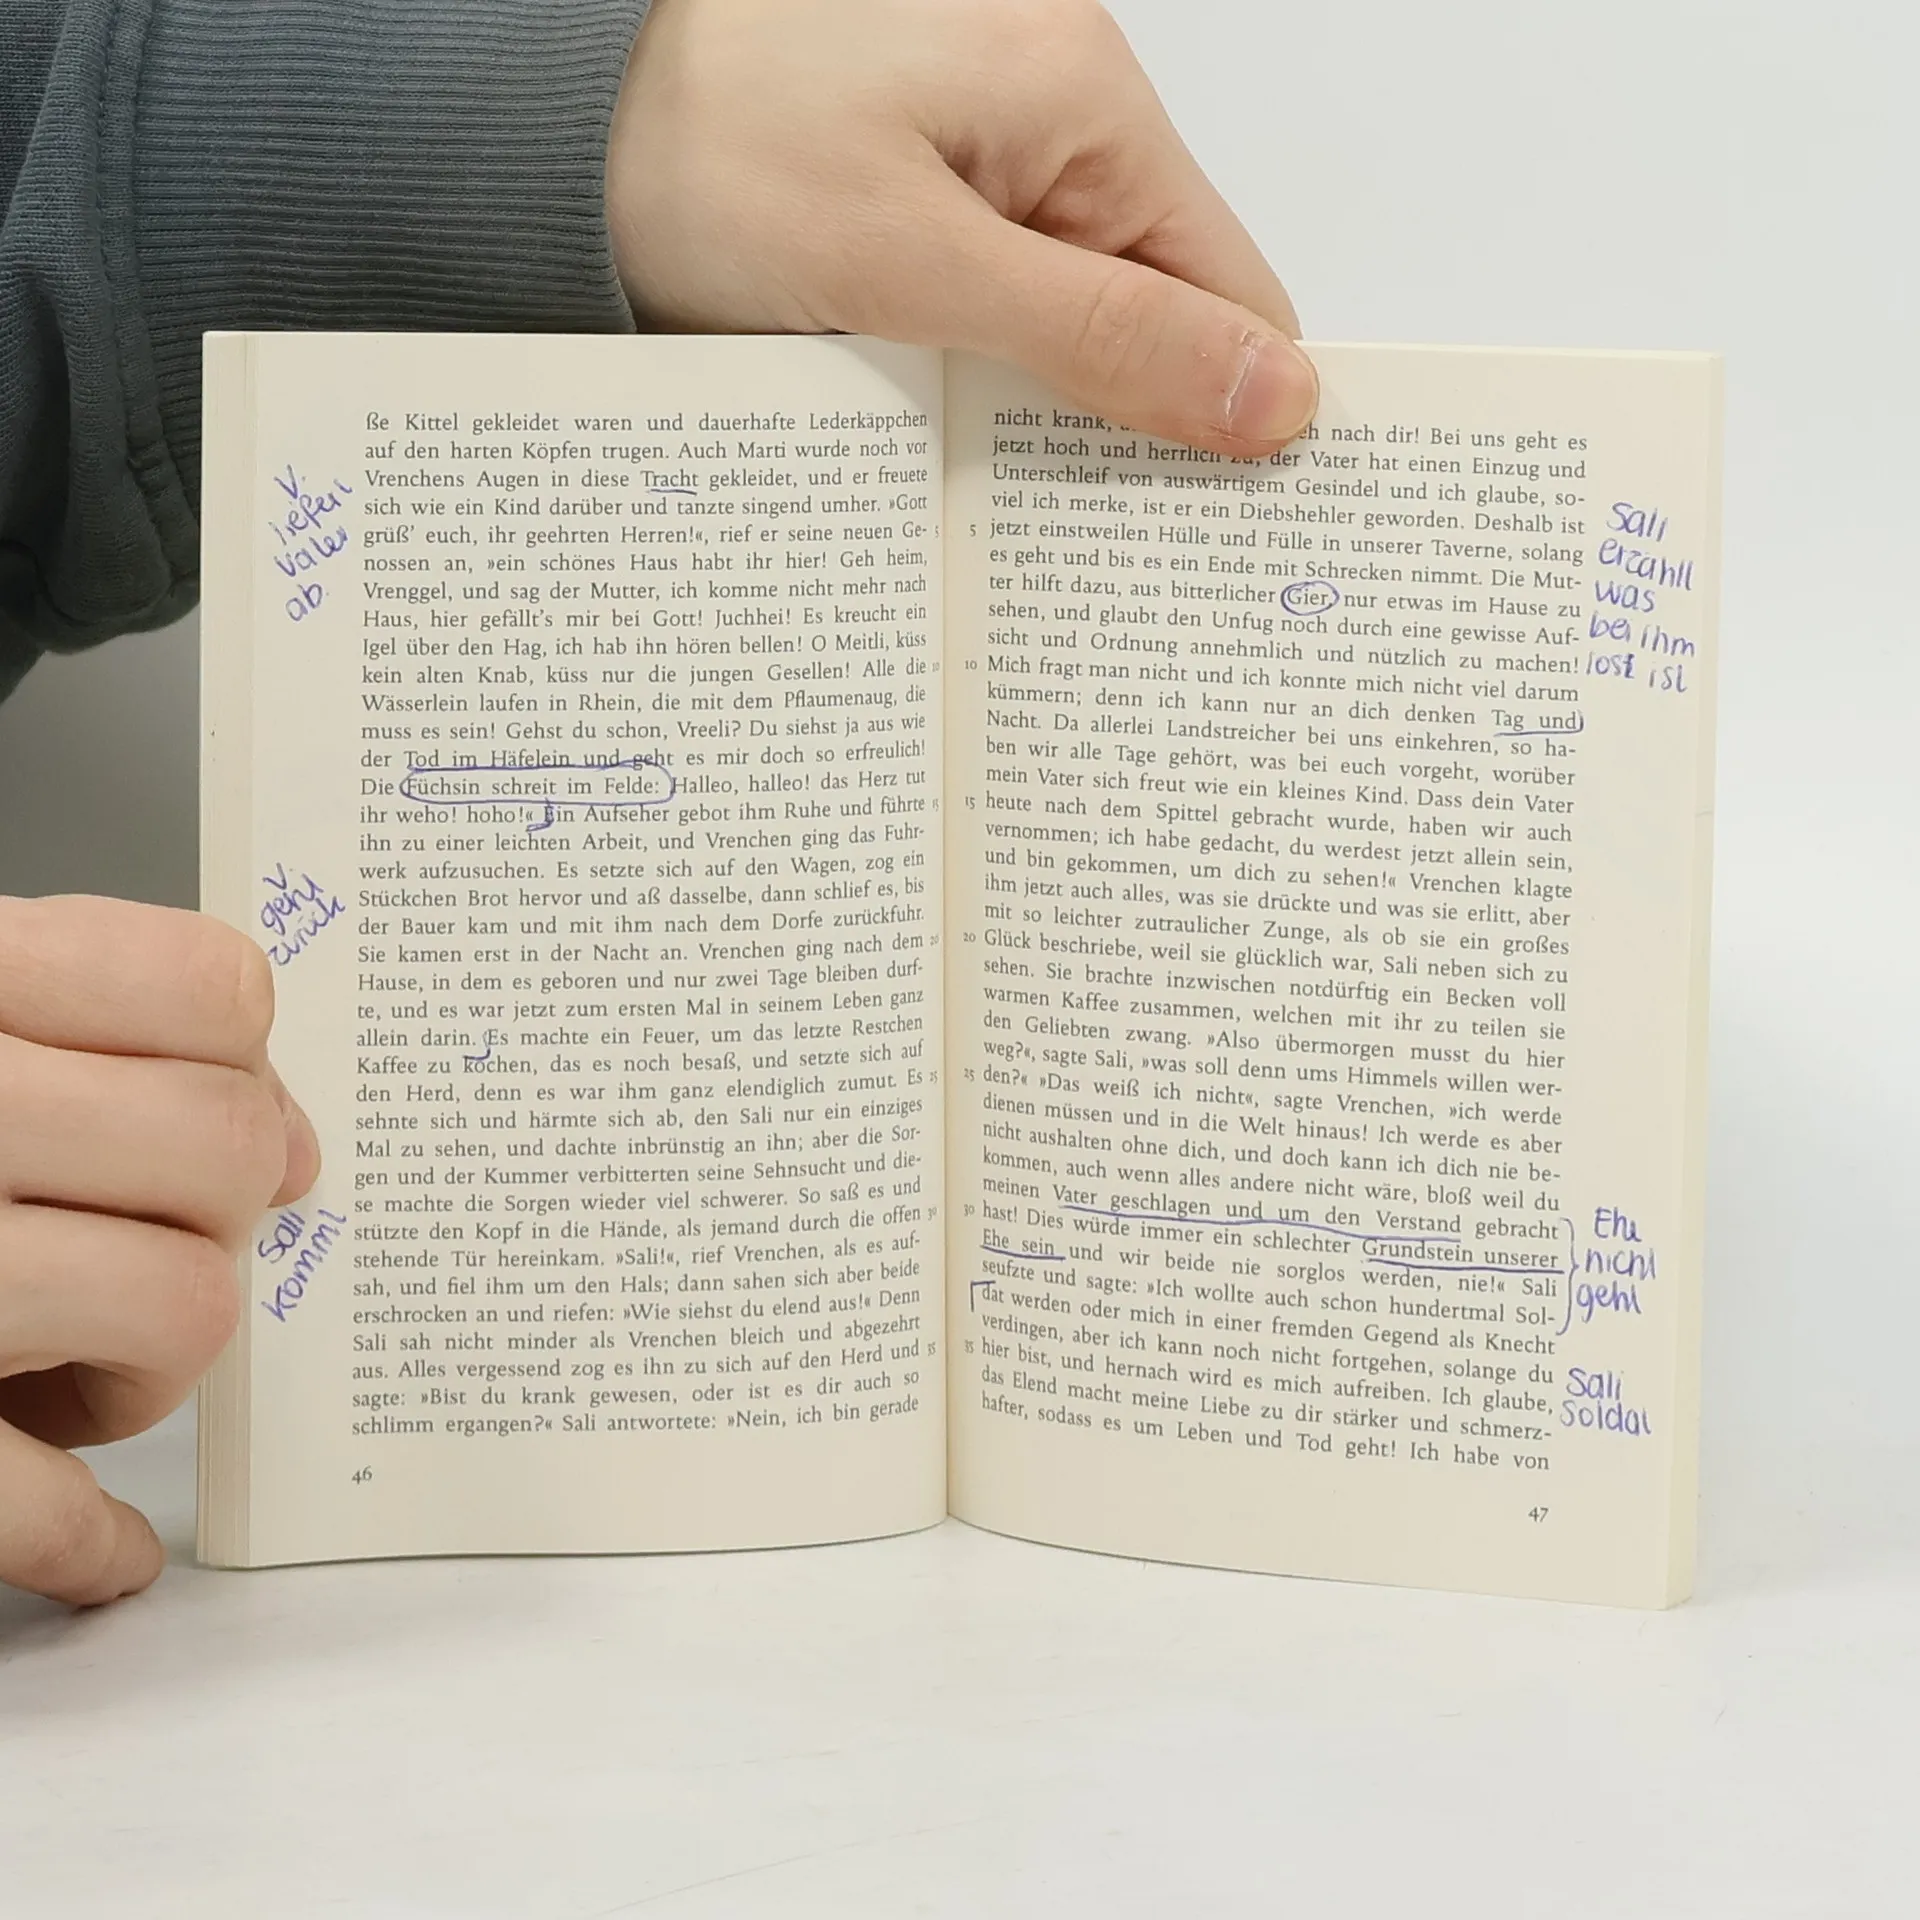 ße Kittel gekleidet waren und dauerhafte Lederkäppchen
auf den harten Köpfen trugen. Auch Marti wurde noch vor
Vrenchens Augen in diese Tracht gekleidet, und er freuete
sich wie ein Kind darüber und tanzte singend umher. »Gott
grüß’ euch, ihr geehrten Herren!«, rief er seine neuen Ge- 5
nossen an, »ein schönes Haus habt ihr hier! Geh heim,
Vrenggel, und sag der Mutter, ich komme nicht mehr nach
Haus, hier gefällt’s mir bei Gott! Juchhei! Es kreucht ein
Igel über den Hag, ich hab ihn hören bellen! O Meitli, küss
kein alten Knab, küss nur die jungen Gesellen! Alle die 10
Wässerlein laufen in Rhein, die mit dem Pflaumenaug, die
muss es sein! Gehst du schon, Vreeli? Du siehst ja aus wie
der Tod im Häfelein und geht es mir doch so erfreulich!
Die Füchsin schreit im Felde: Halleo, halleo! das Herz tut
ihr weho! hoho!« Ein Aufseher gebot ihm Ruhe und führte 15
ihn zu einer leichten Arbeit, und Vrenchen ging das Fuhr-
werk aufzusuchen. Es setzte sich auf den Wagen, zog ein
Stückchen Brot hervor und aß dasselbe, dann schlief es, bis
der Bauer kam und mit ihm nach dem Dorfe zurückfuhr.
Sie kamen erst in der Nacht an. Vrenchen ging nach dem 20
Hause, in dem es geboren und nur zwei Tage bleiben durf-
te, und es war jetzt zum ersten Mal in seinem Leben ganz
allein darin. Es machte ein Feuer, um das letzte Restchen
Kaffee zu kochen, das es noch besaß, und setzte sich auf
den Herd, denn es war ihm ganz elendiglich zumut. Es 25
sehnte sich und härmte sich ab, den Sali nur ein einziges
Mal zu sehen, und dachte inbrünstig an ihn; aber die Sor-
gen und der Kummer verbitterten seine Sehnsucht und die-
se machte die Sorgen wieder viel schwerer. So saß es und
stützte den Kopf in die Hände, als jemand durch die offen 30
stehende Tür hereinkam. »Sali!«, rief Vrenchen, als es auf-
sah, und fiel ihm um den Hals; dann sahen sich aber beide
erschrocken an und riefen: »Wie siehst du elend aus!« Denn
Sali sah nicht minder als Vrenchen bleich und abgezehrt
aus. Alles vergessend zog es ihn zu sich auf den Herd und 35
sagte: »Bist du krank gewesen, oder ist es dir auch so
schlimm ergangen?« Sali antwortete: »Nein, ich bin gerade
46
V.
liefert
Vater
ab.
V.
geht
zurück
Sali
kommt
nicht krank, nach dir! Bei uns geht es
jetzt hoch und herrlich zu, der Vater hat einen Einzug und
Unterschleif von auswärtigem Gesindel und ich glaube, so-
viel ich merke, ist er ein Diebshehler geworden. Deshalb ist
5 jetzt einstweilen Hülle und Fülle in unserer Taverne, solang
es geht und bis es ein Ende mit Schrecken nimmt. Die Mut-
ter hilft dazu, aus bitterlicher Gier, nur etwas im Hause zu
sehen, und glaubt den Unfug noch durch eine gewisse Auf-
sicht und Ordnung annehmlich und nützlich zu machen!
10 Mich fragt man nicht und ich konnte mich nicht viel darum
kümmern; denn ich kann nur an dich denken Tag und
Nacht. Da allerlei Landstreicher bei uns einkehren, so ha-
ben wir alle Tage gehört, was bei euch vorgeht, worüber
mein Vater sich freut wie ein kleines Kind. Dass dein Vater
15 heute nach dem Spittel gebracht wurde, haben wir auch
vernommen; ich habe gedacht, du werdest jetzt allein sein,
und bin gekommen, um dich zu sehen!« Vrenchen klagte
ihm jetzt auch alles, was sie drückte und was sie erlitt, aber
mit so leichter zutraulicher Zunge, als ob sie ein großes
20 Glück beschriebe, weil sie glücklich war, Sali neben sich zu
sehen. Sie brachte inzwischen notdürftig ein Becken voll
warmen Kaffee zusammen, welchen mit ihr zu teilen sie
den Geliebten zwang. »Also übermorgen musst du hier
weg?«, sagte Sali, »was soll denn ums Himmels willen wer-
25 den?« »Das weiß ich nicht«, sagte Vrenchen, »ich werde
dienen müssen und in die Welt hinaus! Ich werde es aber
nicht aushalten ohne dich, und doch kann ich dich nie be-
kommen, auch wenn alles andere nicht wäre, bloß weil du
meinen Vater geschlagen und um den Verstand gebracht
30 hast! Dies würde immer ein schlechter Grundstein unserer
Ehe sein und wir beide nie sorglos werden, nie!« Sali
seufzte und sagte: »Ich wollte auch schon hundertmal Sol-
dat werden oder mich in einer fremden Gegend als Knecht
verdingen, aber ich kann noch nicht fortgehen, solange du
35 hier bist, und hernach wird es mich aufreiben. Ich glaube,
das Elend macht meine Liebe zu dir stärker und schmerz-
hafter, sodass es um Leben und Tod geht! Ich habe von
47
Sali
erzählt
was
bei ihm
lost ist
Ehe
nicht
geht
Sali
Soldat